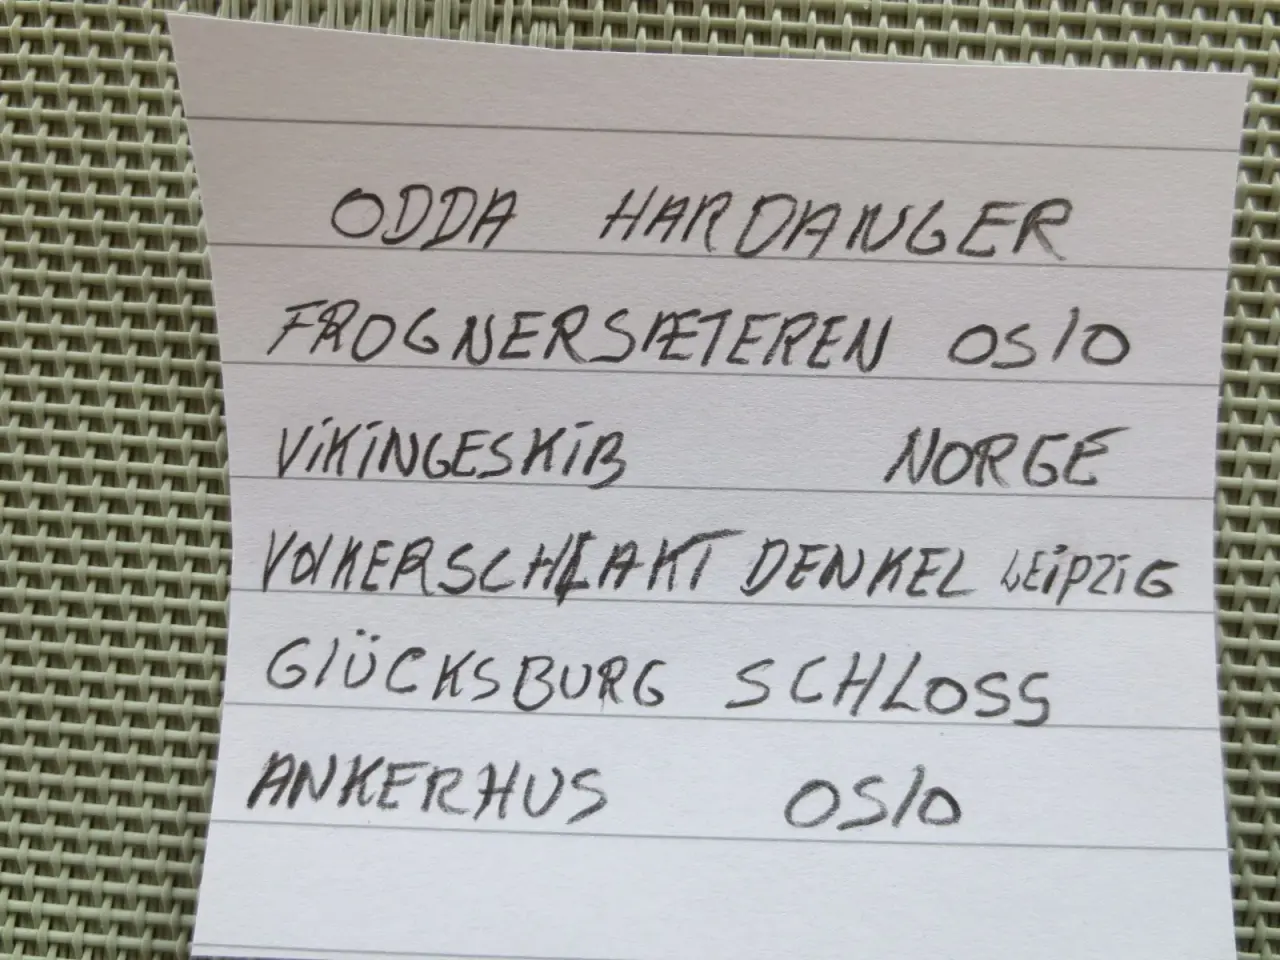 ODDA HARDANGER
FROGNERSÆTEREN OSlO
ViKiNGESKiB NORGE
VOlKERSCHLAKT DENKEL LEiPZiG
GlÜCKSBURG SCHLOSS
ANKERHUS OSlO